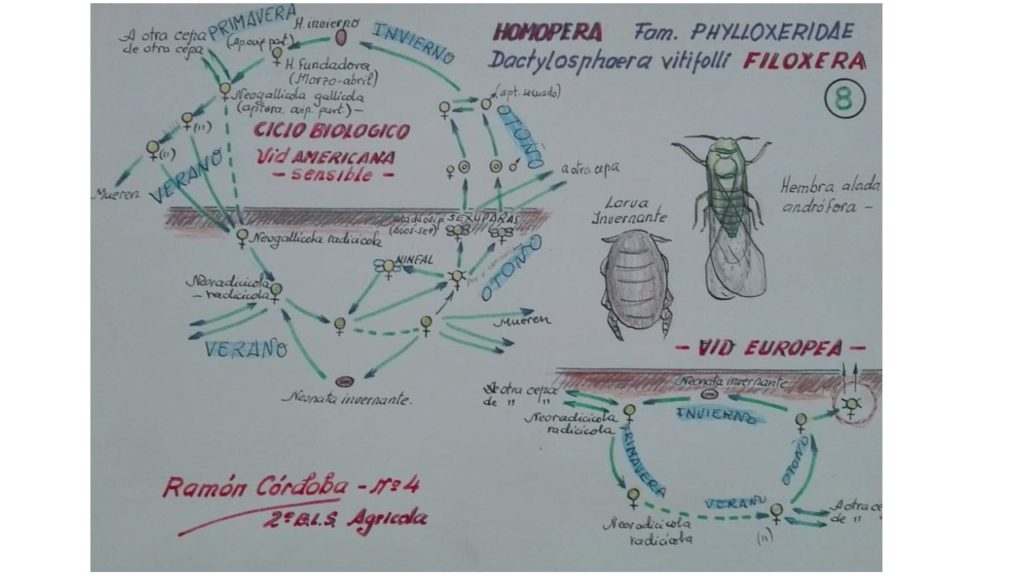 HOMOPERA Fam. PHYLLOXERIDAE
Dactylosphaera vitifolli FILOXERA
8
PRIMAVERA
H. invierno
INVIERNO
A otra cepa
de otra cepa
(Apovip. part.)
H. Fundadora
(Marzo-abril)
Neogallicola gallicola
(aptera. ovip. part.)-
(")
(")
VERANO
Mueren
CICLO BIOLOGICO
Vid AMERICANA
- sensible -
(apt. sexuado)
OTOÑO
A otra cepa
SEXUPARAS
Neogallicola radicicola
NINFAL
OTOÑO
Neoradicicola
- radicicola
VERANO
Mueren
Neonata invernante.
Larva
Invernante
Hembra alada
andrófora -
- VID EUROPEA -
Neonata invernante
A otra cepa
de " "
Neoradicicola
radicicola
INVIERNO
PRIMAVERA
OTOÑO
VERANO
Neoradicicola
radicicola
(")
A otra ce
de "
Ramón Córdoba - nº 4
2º B.I.S. Agricola